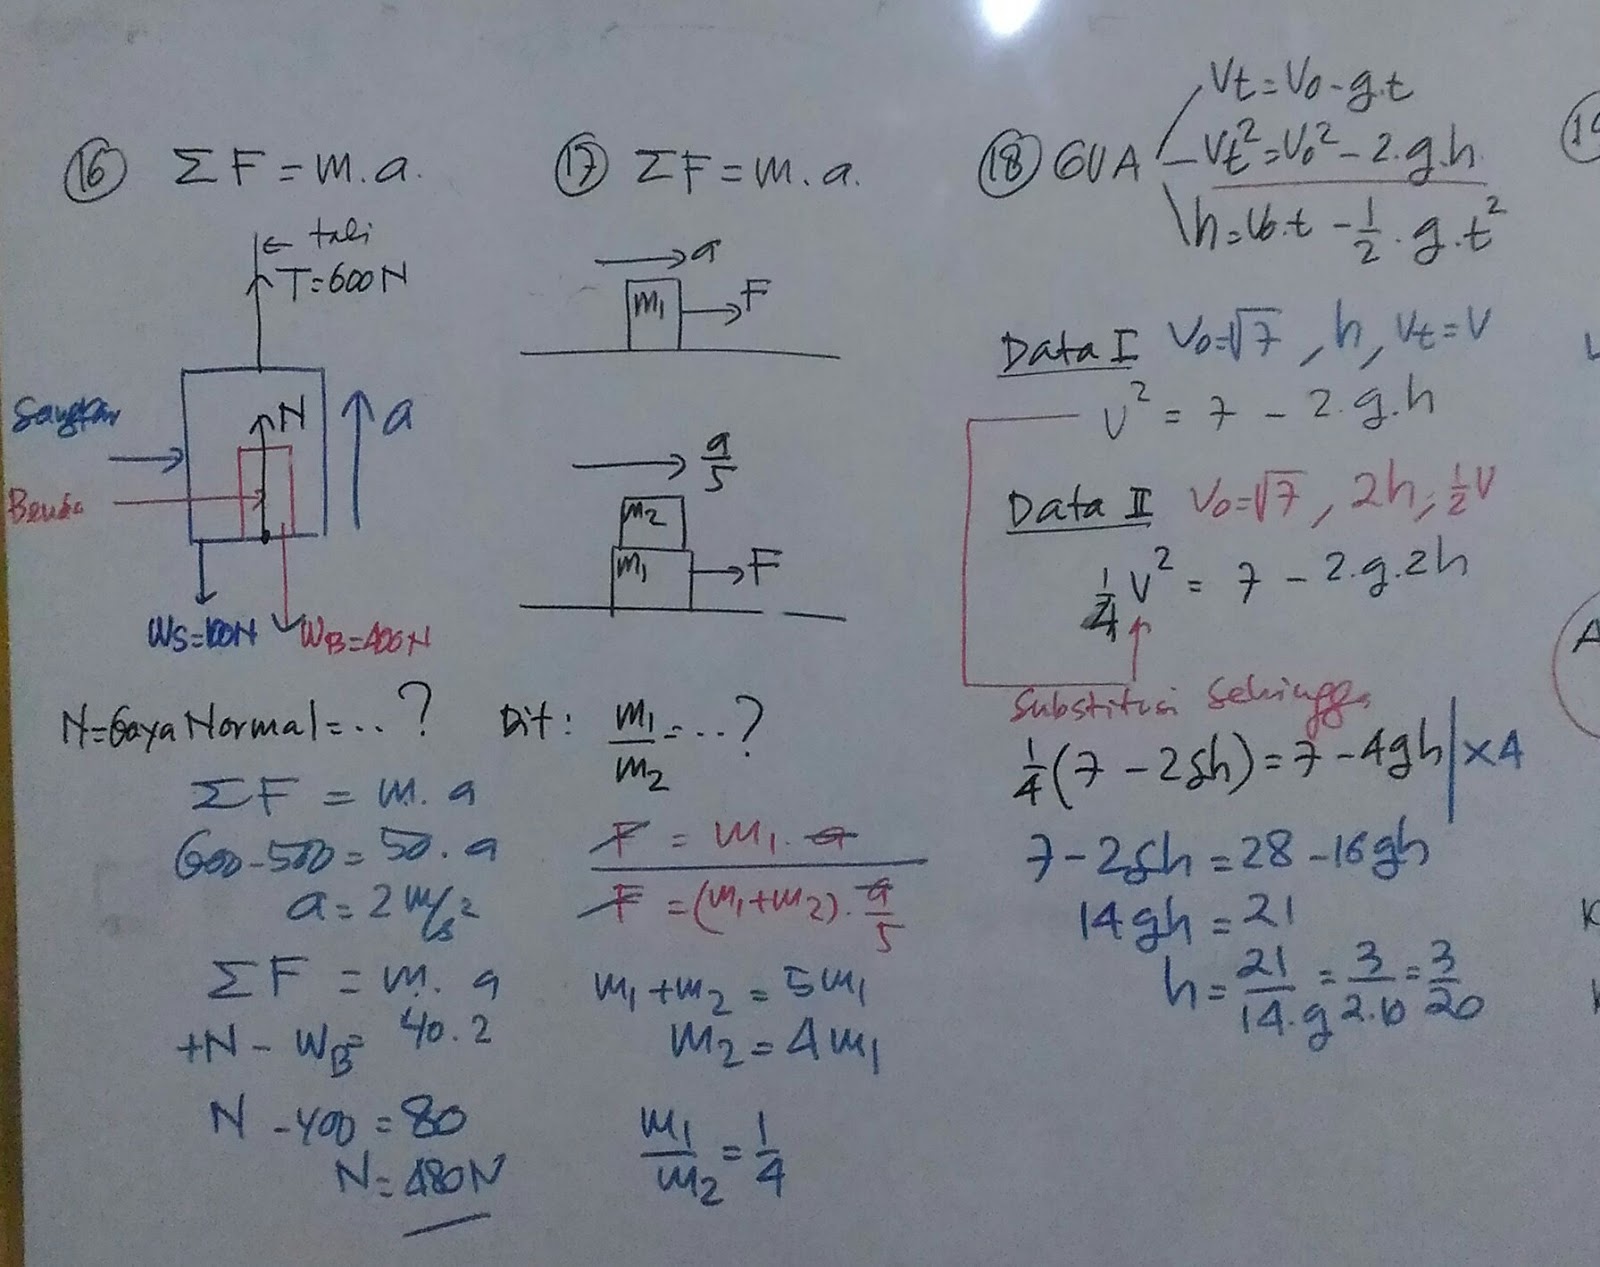 16 ΣF = m.a.
← tali
T=600N
N
a
Sangkar
Benda
Ws=100N
WB=400N
N=Gaya Normal=...?
ΣF = m.a
600-500=50.a
a=2 m/s²
ΣF = m.a
+N - WB= 40.2
N - 400 = 80
N = 480N
17 ΣF = m.a.
a
m₁
F
a/5
m₂
m₁
F
Dit: m₁/m₂ = ...?
F = m₁.a
F = (m₁+m₂).a/5
m₁+m₂ = 5m₁
m₂ = 4m₁
m₁/m₂ = 1/4
18 GVA
Vt=Vo-g.t
Vt²=Vo²-2.g.h
h=Vo.t - 1/2.g.t²
Data I Vo=√7, h, Vt=V
V² = 7 - 2.g.h
Data II Vo=√7, 2h, 1/2V
1/4 V² = 7 - 2.g.2h
Substitusi Sehingga
1/4(7 - 2gh) = 7 - 4gh | ×4
7 - 2gh = 28 - 16gh
14gh = 21
h = 21/14.g = 3/2.10 = 3/20